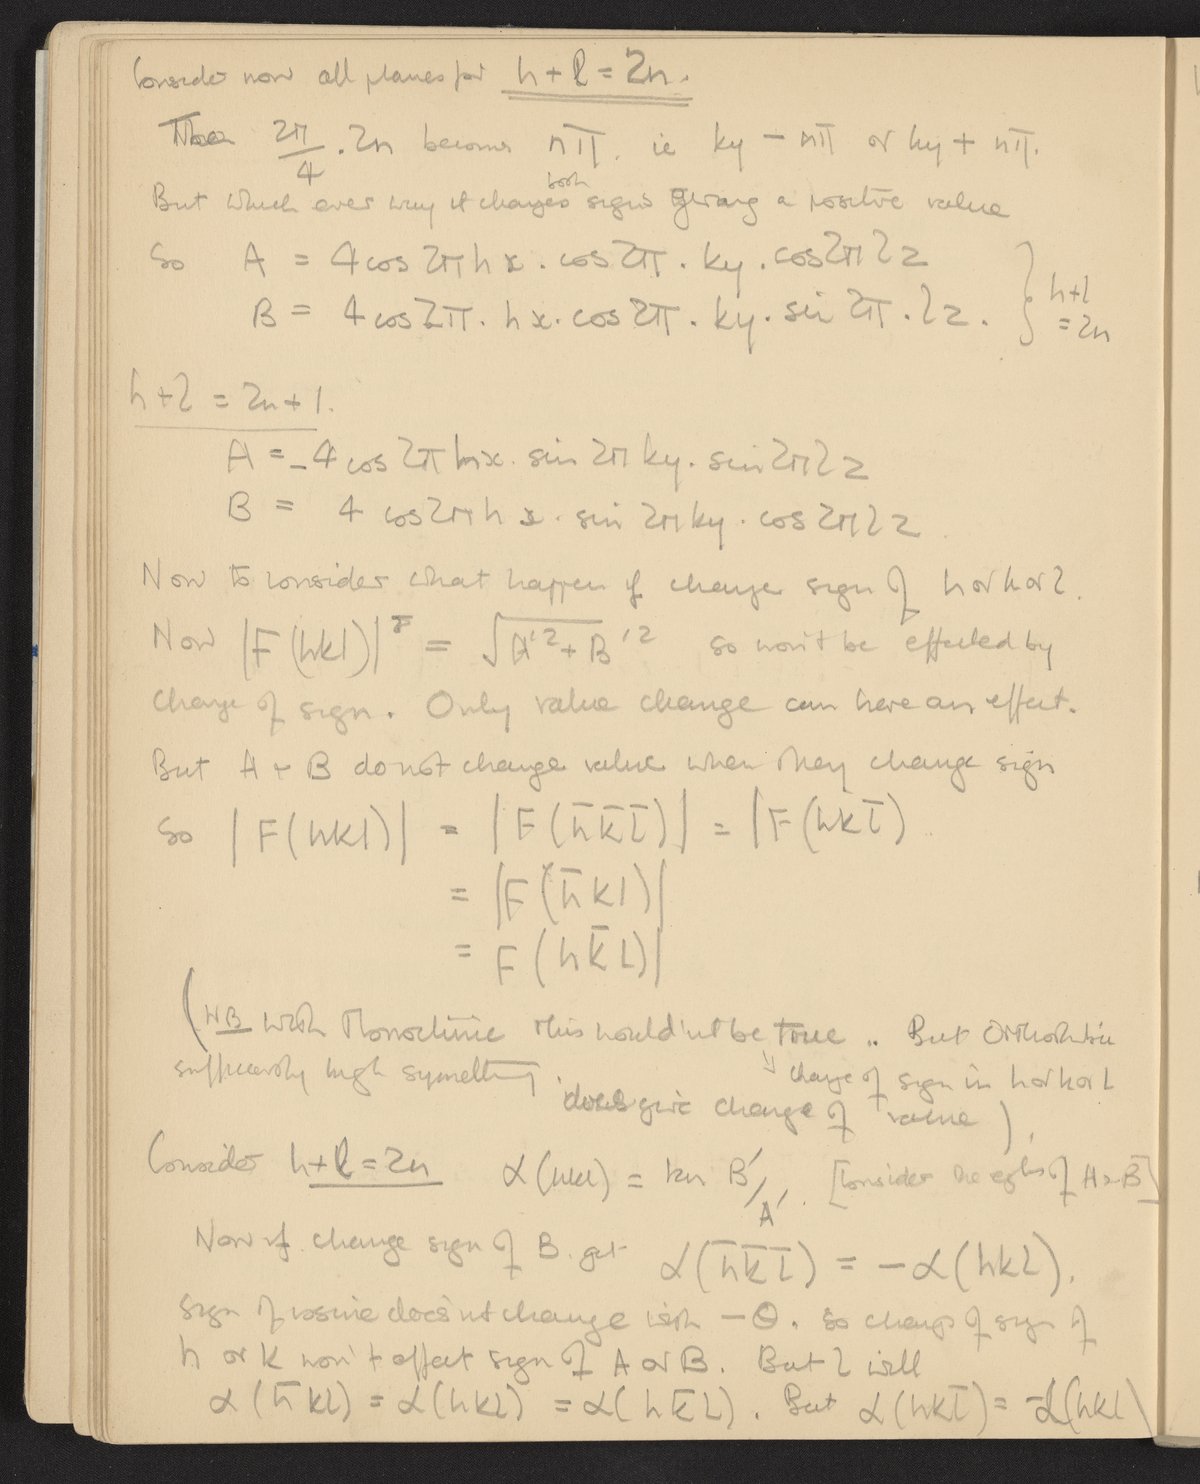 Consider now all planes for h + l = 2n.
Then 2π/4 . 2n becomes nπ. ie ky - nπ or ky + nπ.
But which ever way it changes both signs giving a positive value
So A = 4 cos 2π hx . cos 2π . ky . cos 2π lz
B = 4 cos 2π . hx . cos 2π . ky . sin 2π . lz . } h+l = 2n
h + l = 2n + 1.
A = - 4 cos 2π hx . sin 2π ky . sin 2π lz
B = 4 cos 2π hx . sin 2π ky . cos 2π lz
Now to consider what happen if change sign of h or k or l.
Now |F(hkl)| = √A'² + B'² so won't be effected by
change of sign. Only value change can have an effect.
But A + B do not change value when they change sign
So |F(hkl)| = |F(h̄k̄l̄)| = |F(hkl̄)
= |F(h̄kl)|
= F(hk̄l)|
(NB with Monoclinic this wouldn't be true .. But Orthorhombic
sufficiently high symmetry
change of sign in h or k or l
does give change of value).
Consider h + l = 2n α(hkl) = tan B'/A'. [Consider the of A + B]
Now if change sign of B. get α(h̄k̄l̄) = -α(hkl).
Sign of cosine does'nt change with -θ. So change of sign of
h or k won't affect sign of A or B. But l will
α(h̄kl) = α(hkl) = α(hk̄l). But α(hkl̄) = -α(hkl)